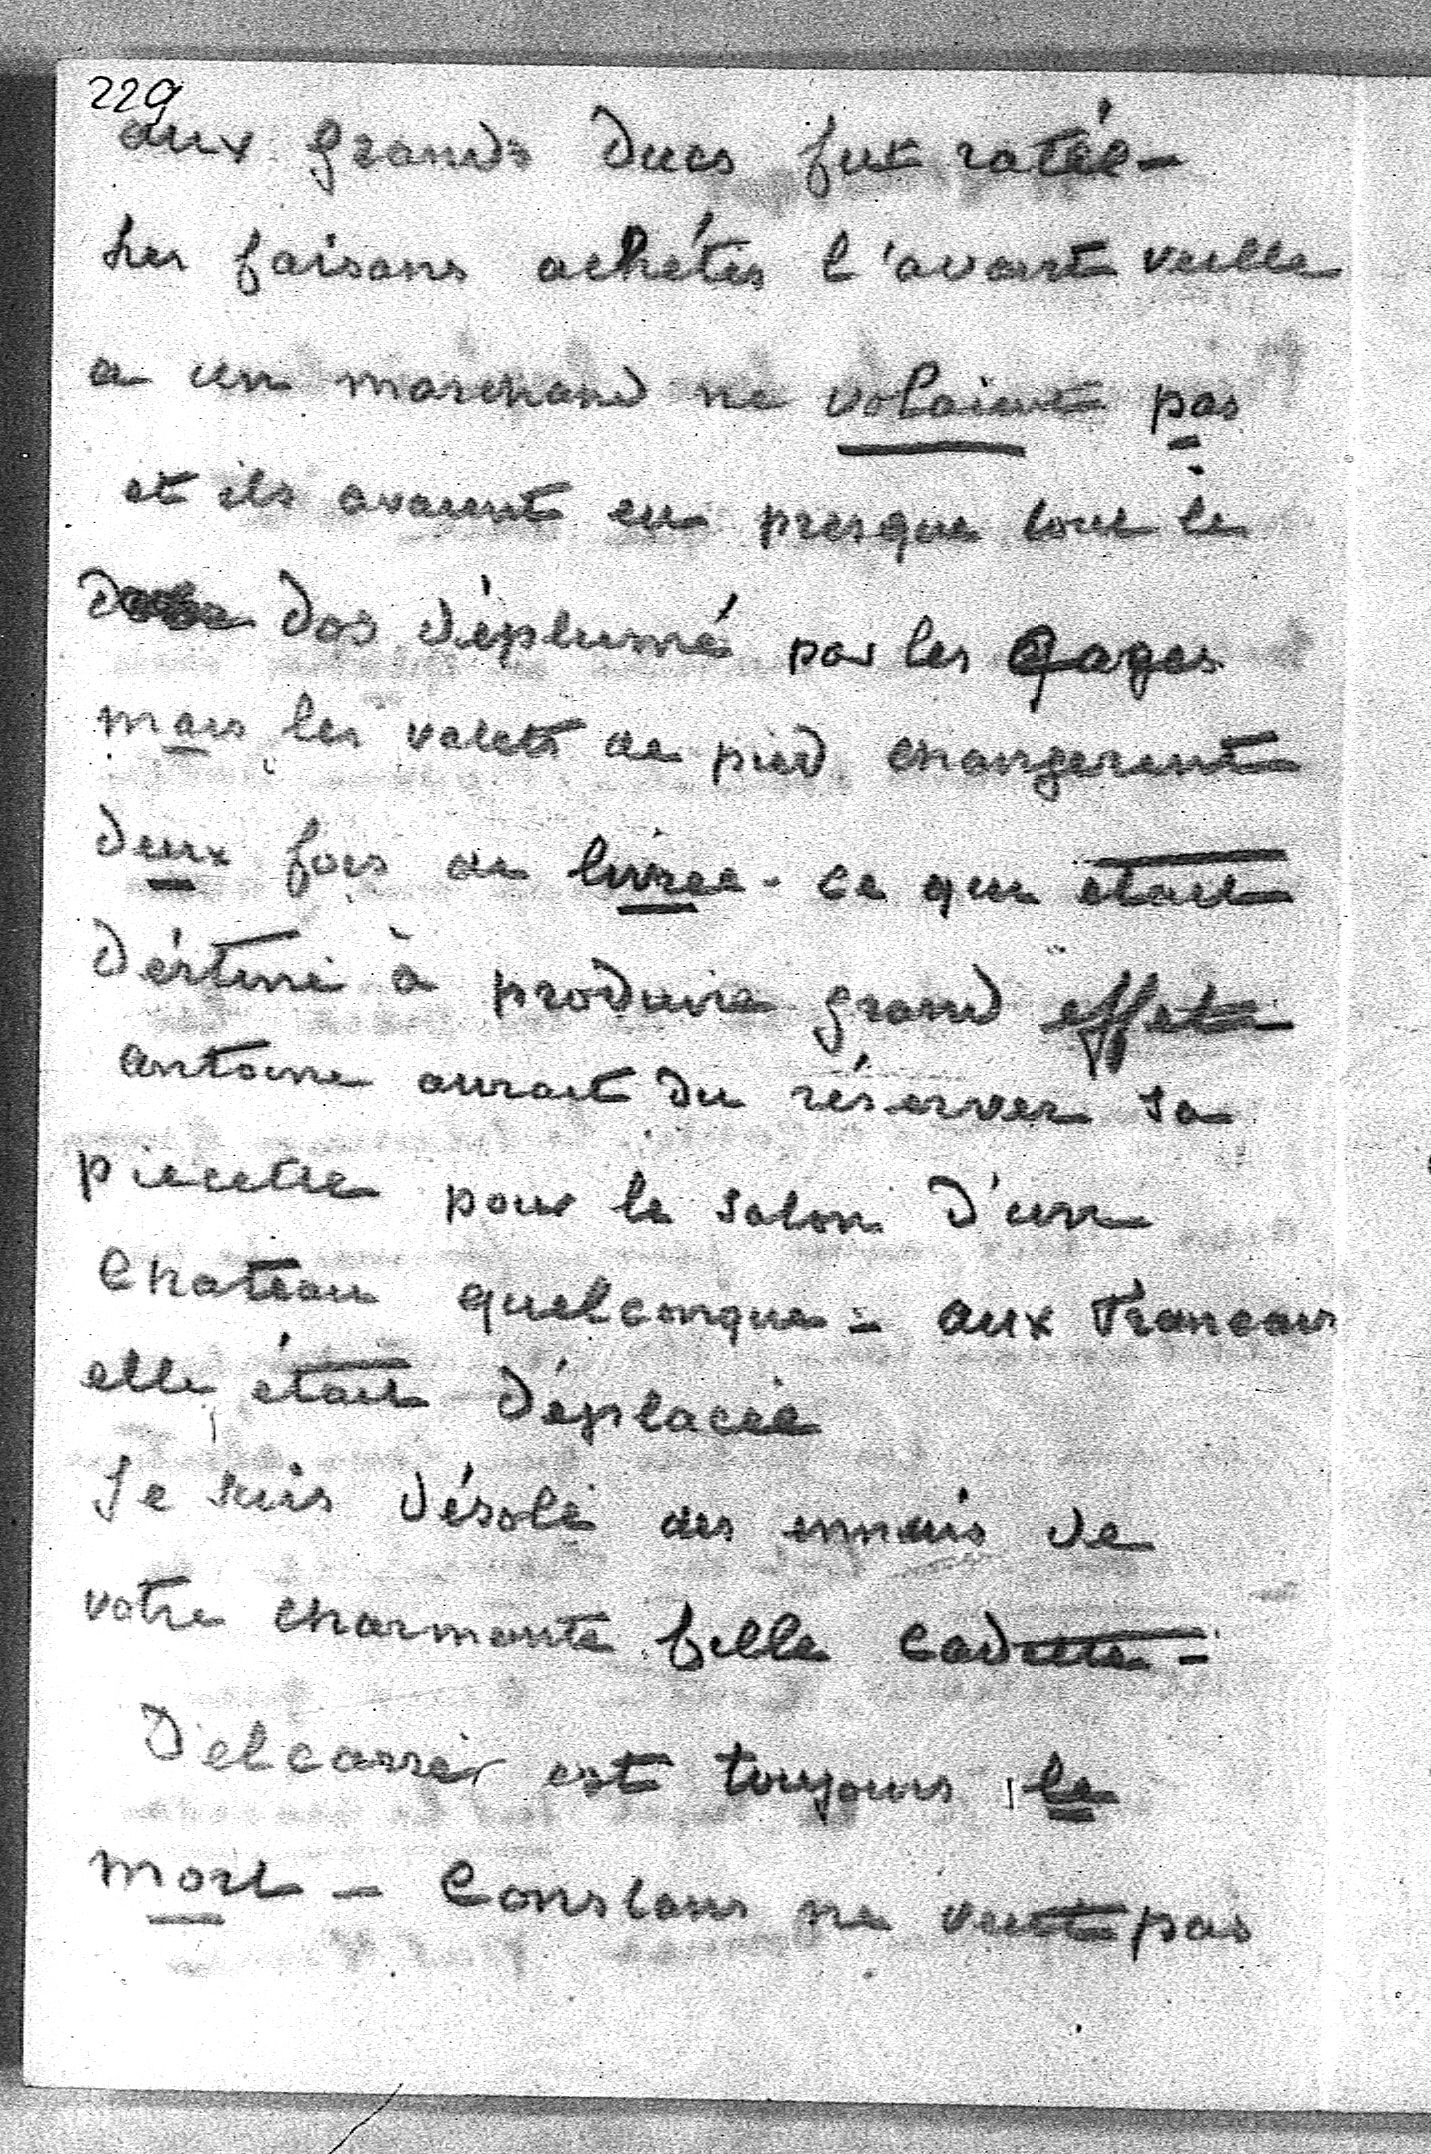 229
aux grands ducs fut ratée –
les faisans achétés l'avant veille
a un marchand ne volaient pas
et ils avaient eu presque tout le
dos déplumé par les Cages
mais les valets de pied changerent
deux fois de livree – ce qui était
déstiné à produire grand effet
antoine aurait du réserver sa
piecette pour le salon d'un
Chateau quelconque – aux Francais
elle était déplacée
Je suis désolé des ennuis de
votre charmante fille cadette –
Delcassé est toujours le
mort – Constans ne veut pas